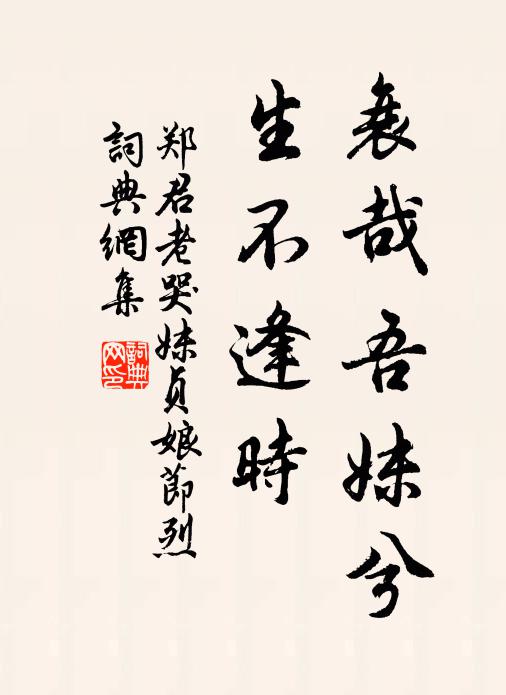 哀哉吾妹兮
生不逢時
郑君老哭妹贞娘節烈
詞典網集
詞典网印